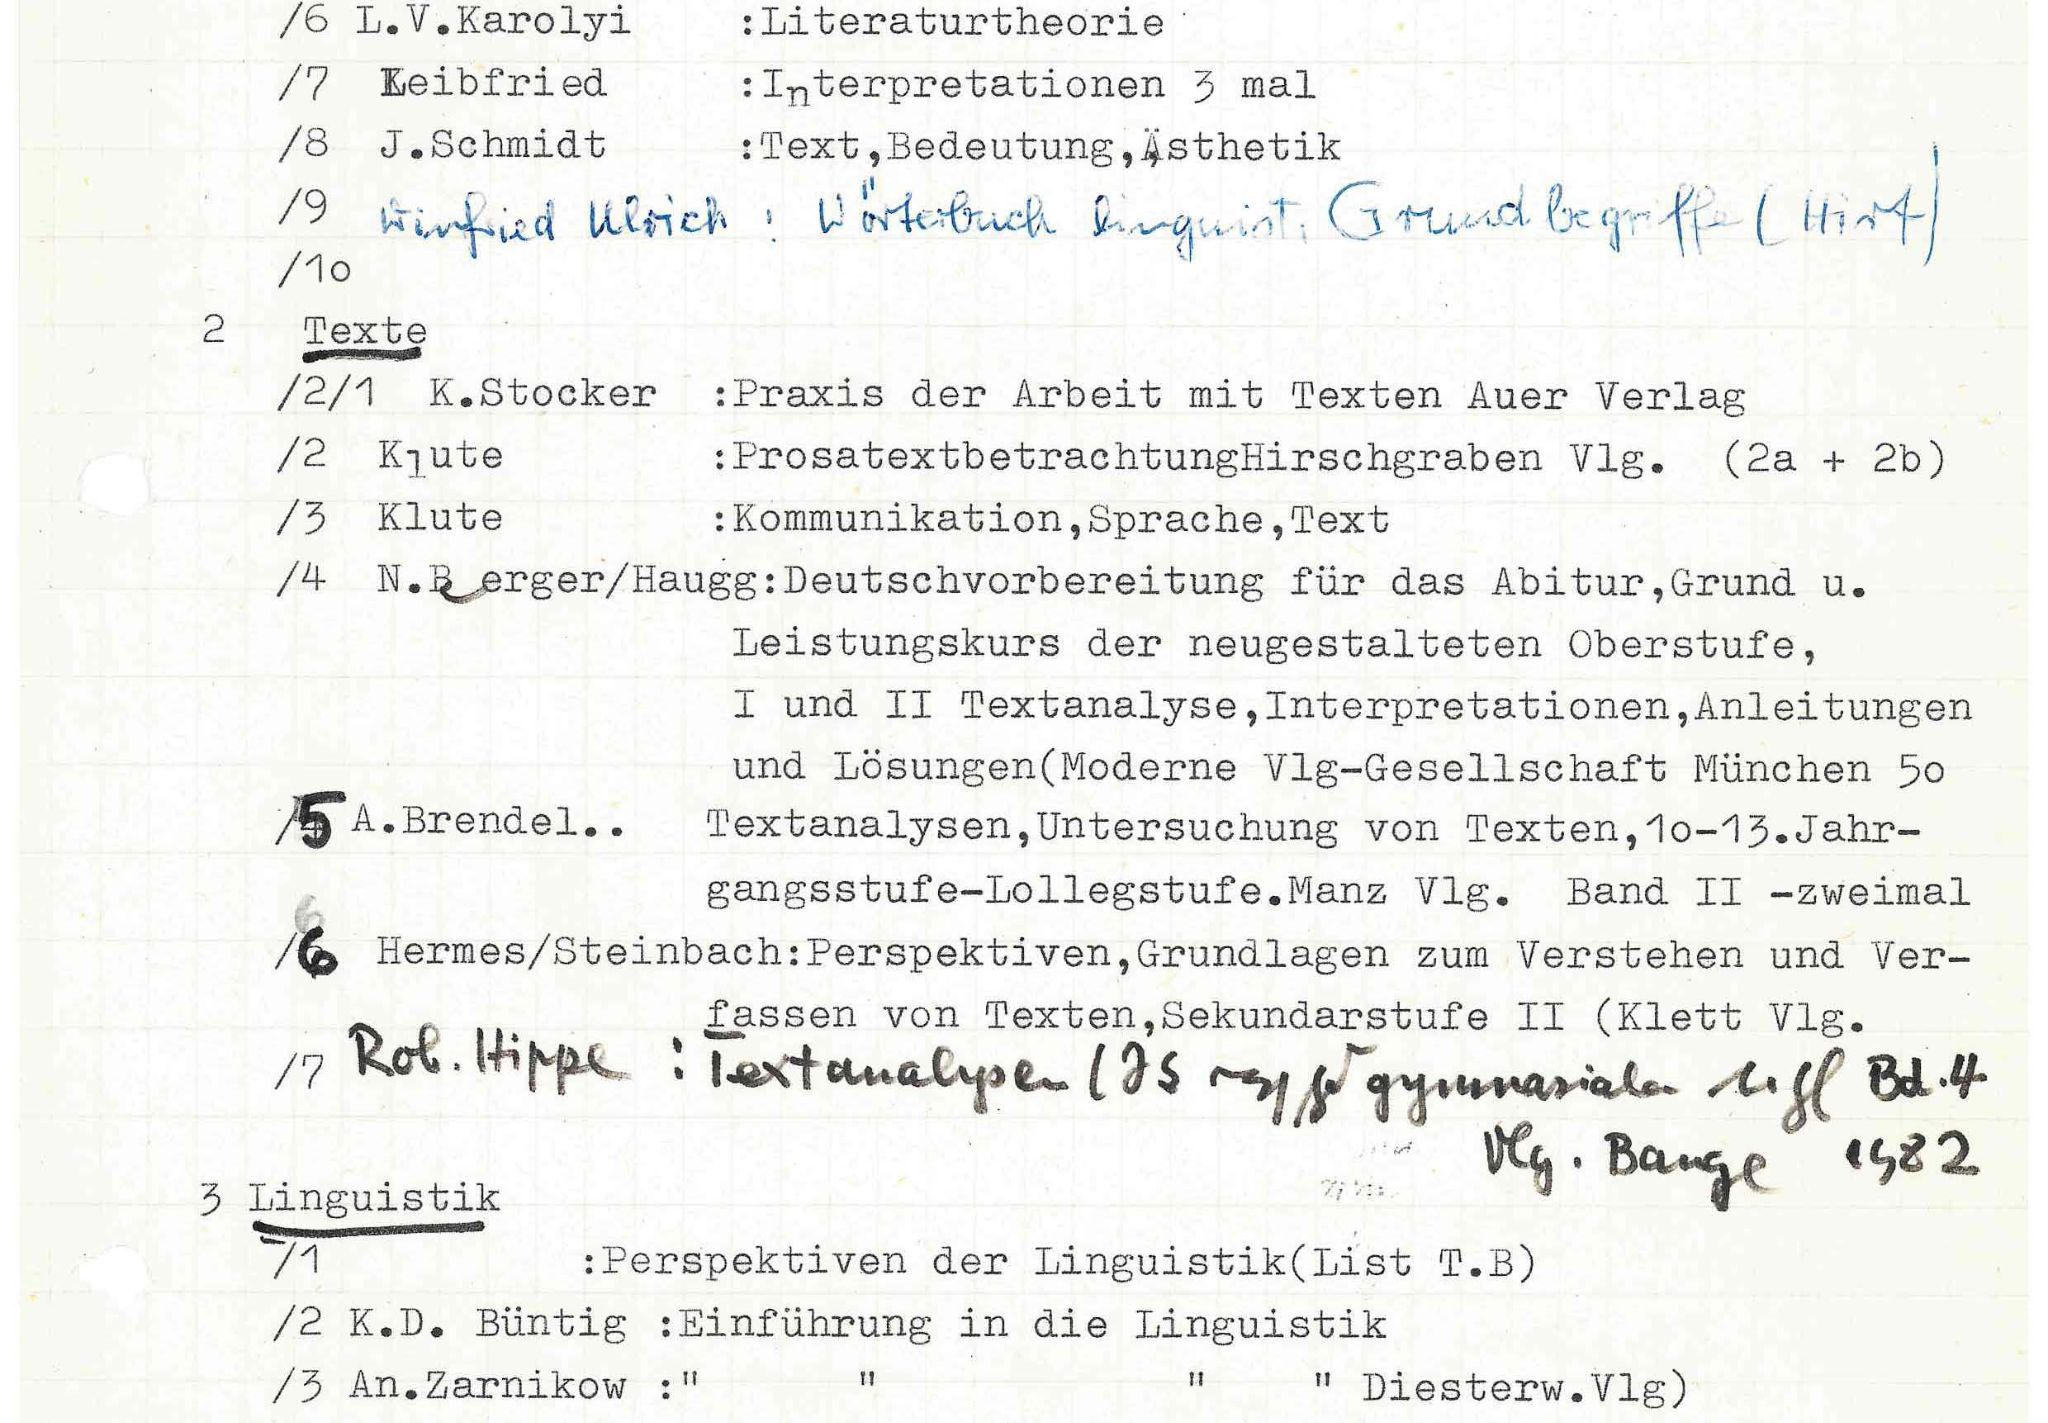 /6 L.V.Karolyi :Literaturtheorie
/7 Leibfried :Interpretationen 3 mal
/8 J.Schmidt :Text,Bedeutung,Ästhetik
/9 Winfried Ulrich : Wörterbuch linguist. Grundbegriffe (Hirt)
/1o
2 Texte
/2/1 K.Stocker :Praxis der Arbeit mit Texten Auer Verlag
/2 Klute :ProsatextbetrachtungHirschgraben Vlg. (2a + 2b)
/3 Klute :Kommunikation,Sprache,Text
/4 N.Berger/Haugg:Deutschvorbereitung für das Abitur,Grund u.
Leistungskurs der neugestalteten Oberstufe,
I und II Textanalyse,Interpretationen,Anleitungen
und Lösungen(Moderne Vlg-Gesellschaft München 5o
/5 A.Brendel.. Textanalysen,Untersuchung von Texten,1o-13.Jahr-
gangsstufe-Lollegstufe.Manz Vlg. Band II -zweimal
/6 Hermes/Steinbach:Perspektiven,Grundlagen zum Verstehen und Ver-
fassen von Texten,Sekundarstufe II (Klett Vlg.
/7 Rob. Hippe : Textanalysen ( gymnasialen Bd.4
Vlg. Bange 1982
3 Linguistik
/1 :Perspektiven der Linguistik(List T.B)
/2 K.D. Büntig :Einführung in die Linguistik
/3 An.Zarnikow :" " " " Diesterw.Vlg)